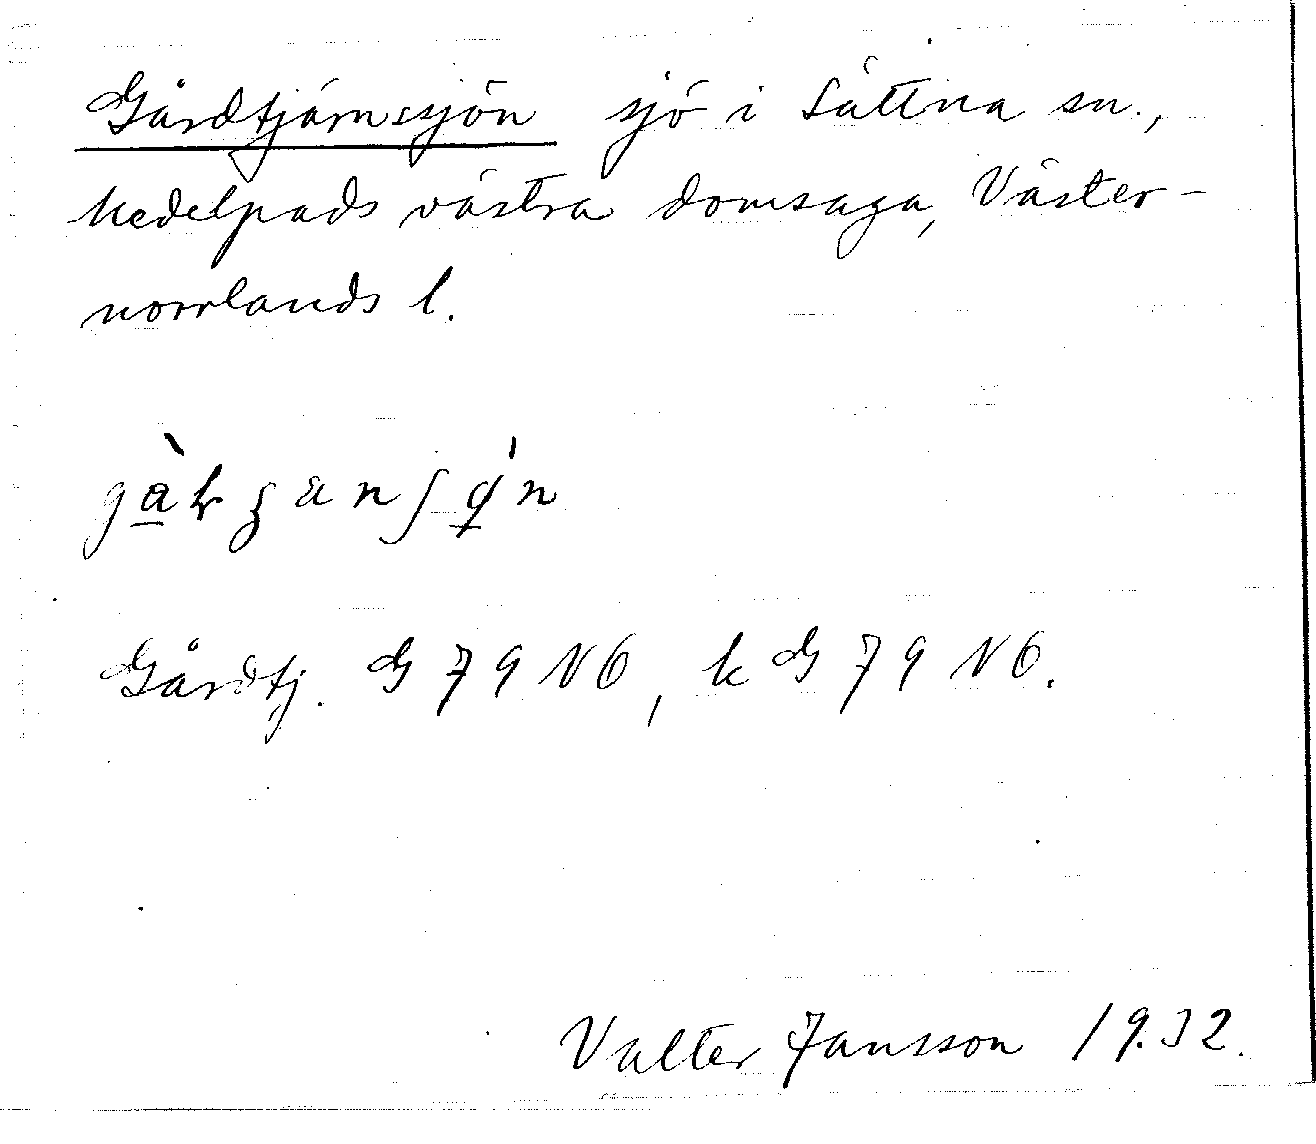 Gårdtjärnssjön sjö i Sättna sn.,
Medelpads västra domsaga, Väster-
norrlands l.
Gårdtj. G 79 NO, k G 79 NO.
Valter Jansson 1932.